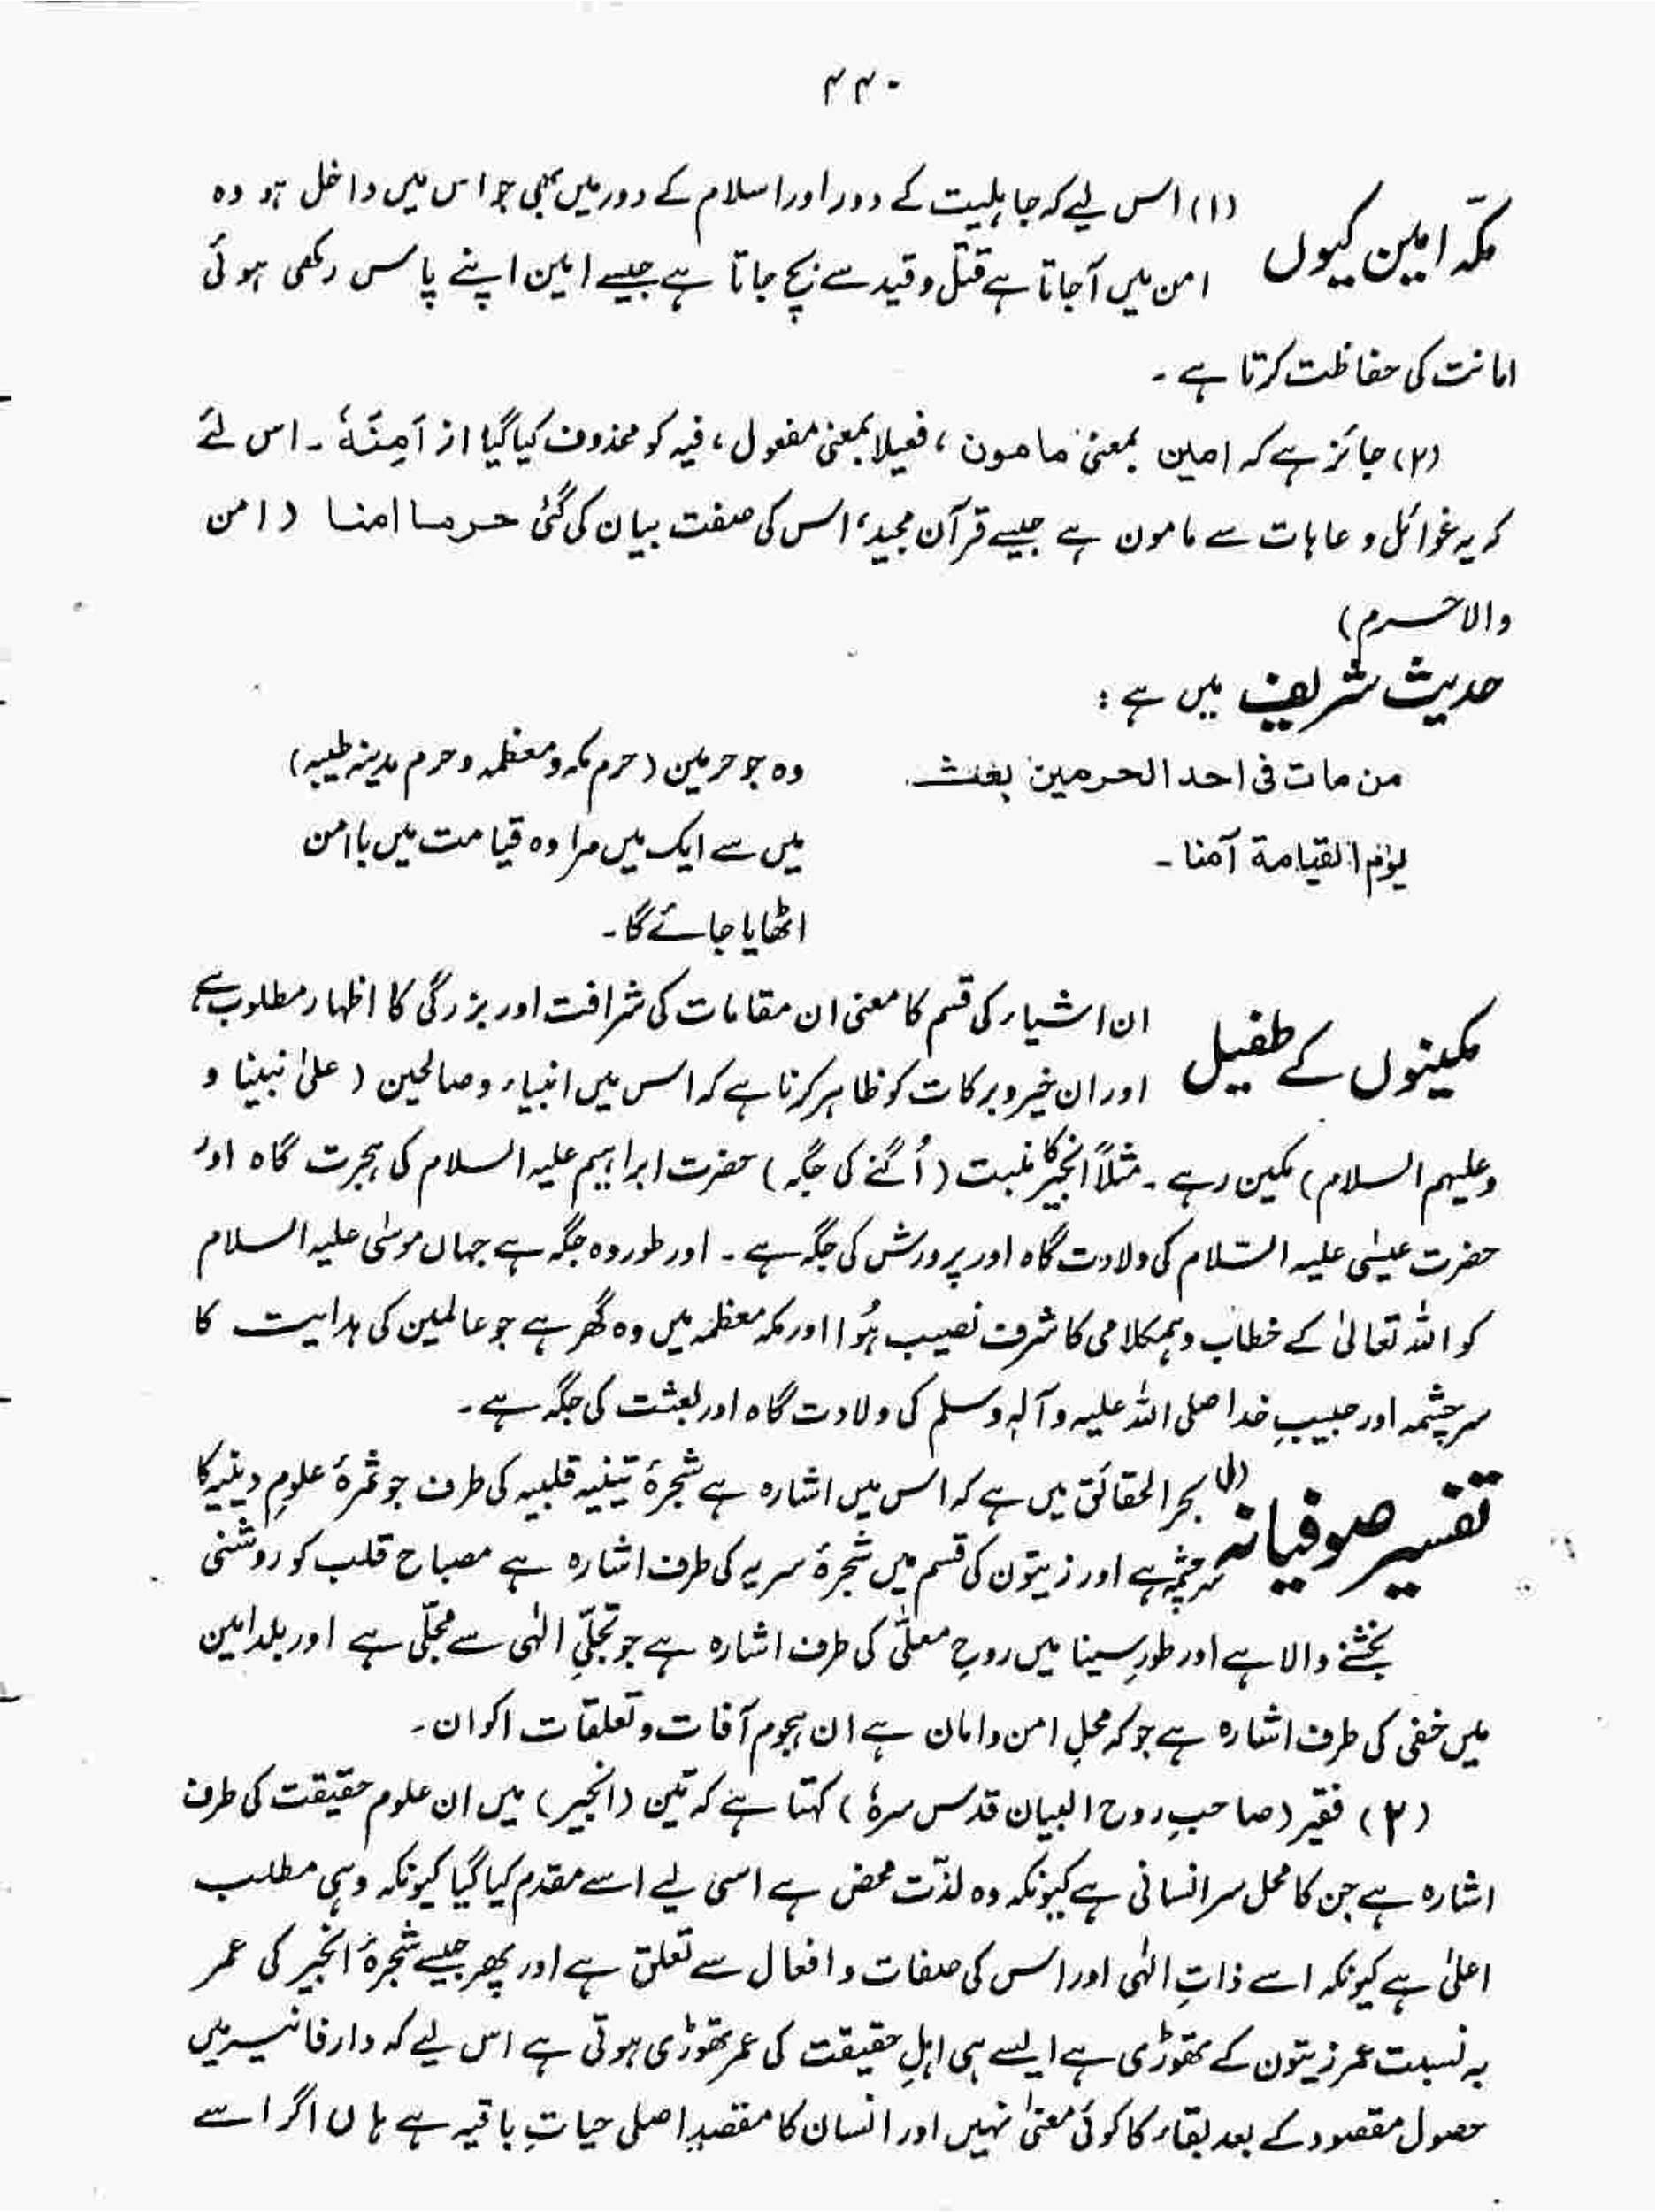 ۴۴۰
مکّہ امین کیوں
(۱) اس لیے کہ جاہلیت کے دور اور اسلام کے دور میں بھی جو اس میں داخل ہو وہ
امن میں آجاتا ہے قتل و قید سے بچ جاتا ہے جیسے امین اپنے پاس رکھی ہوئی
امانت کی حفاظت کرتا ہے ۔
(۲) جائز ہے کہ امین بمعنیٰ مامون ، فعیلا بمعنیٰ مفعول ، فیہ کو محذوف کیا گیا از آمِنَہٗ ۔ اس لئے
کہ یہ غوائل و عاہات سے مامون ہے جیسے قرآن مجید ، اس کی صفت بیان کی گئی حرما امنا (امن
والا حرم)
حدیث شریف میں ہے :
من مات فی احد الحرمین بعث
یوم القیامة آمنا ۔
وہ جو حرمین (حرم مکہ و معظمہ و حرم مدینہ طیبہ)
میں سے ایک میں مرا وہ قیامت میں باامن
اٹھایا جائے گا ۔
مکینوں کے طفیل
ان اشیاء کی قسم کا معنی ان مقامات کی شرافت اور بزرگی کا اظہار مطلوب ہے
اور ان خیر و برکات کو ظاہر کرنا ہے کہ اس میں انبیاء و صالحین (علیٰ نبینا و
وعلیہم السلام) مکین رہے ۔ مثلاً انجیر کا منبت (اُگنے کی جگہ) حضرت ابراہیم علیہ السلام کی ہجرت گاہ اور
حضرت عیسٰی علیہ السّلام کی ولادت گاہ اور پرورش کی جگہ ہے ۔ اور طور وہ جگہ ہے جہاں موسٰی علیہ السلام
کو اللہ تعالیٰ کے خطاب و ہمکلامی کا شرف نصیب ہُوا اور مکہ معظمہ میں وہ گھر ہے جو عالمین کی ہدایت کا
سرچشمہ اور حبیبِ خدا صلی اللہ علیہ و آلہٖ وسلم کی ولادت گاہ اور بعثت کی جگہ ہے ۔
تفسیر صوفیانہ
(۱) بحر الحقائق میں ہے کہ اس میں اشارہ ہے شجرۂ تینیہ قلبیہ کی طرف جو ثمرۂ علوم دینیہ کا
سرچشمہ ہے اور زیتون کی قسم میں شجرۂ سریہ کی طرف اشارہ ہے مصباح قلب کو روشنی
بخشنے والا ہے اور طورِ سینا میں روحِ معلّٰی کی طرف اشارہ ہے جو تجلّیِ الٰہی سے مجلّٰی ہے اور بلد امین
میں خفی کی طرف اشارہ ہے جو کہ محلِ امن و امان ہے ان ہجوم آفات و تعلقات اکوان ۔
(۲) فقیر (صاحبِ روح البیان قدس سرہٗ) کہتا ہے کہ تین (انجیر) میں ان علوم حقیقت کی طرف
اشارہ ہے جن کا محل سر انسانی ہے کیونکہ وہ لذّت محض ہے اسی لیے اسے مقدم کیا گیا کیونکہ وہی مطلب
اعلیٰ ہے کیونکہ اسے ذاتِ الٰہی اور اس کی صفات و افعال سے تعلق ہے اور پھر جیسے شجرۂ انجیر کی عمر
بہ نسبت عمر زیتون کے تھوڑی ہے ایسے ہی اہلِ حقیقت کی عمر تھوڑی ہوتی ہے اس لیے کہ دار فانیہ میں
حصول مقصود کے بعد بقاء کا کوئی معنیٰ نہیں اور انسان کا مقصدِ اصلی حیاتِ باقیہ ہے ہاں اگر اسے